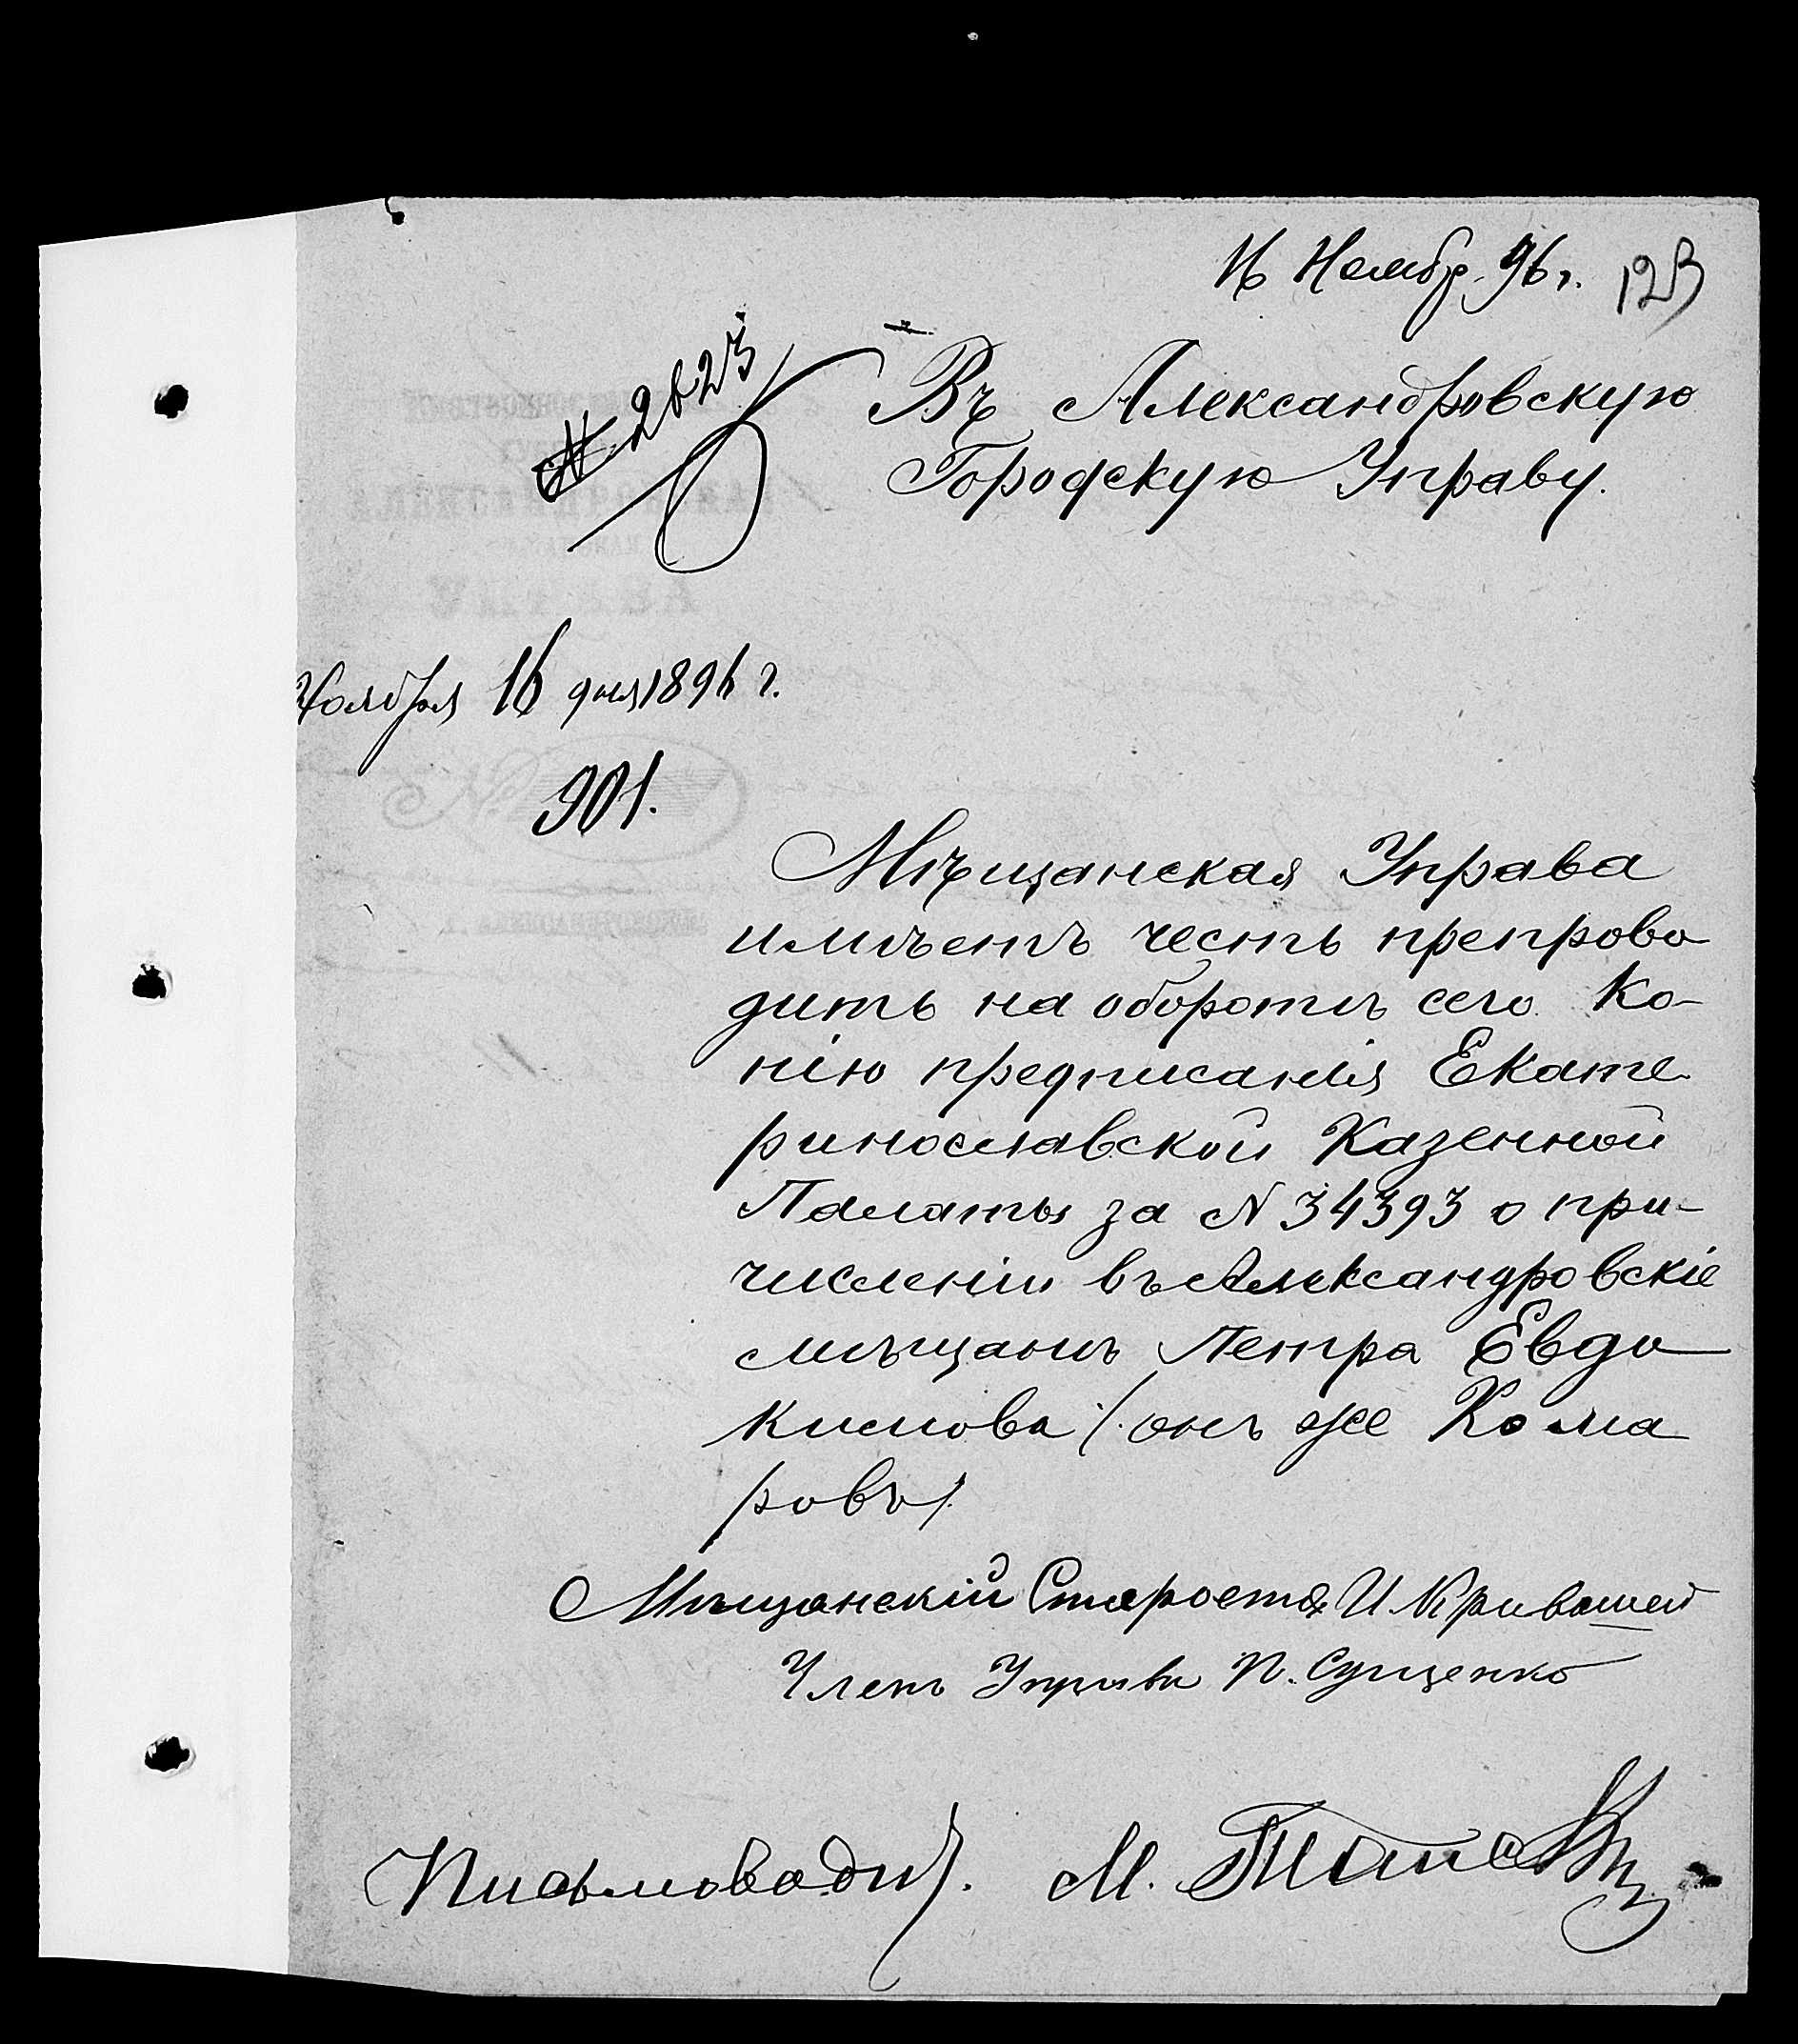 16 Ноябр. 96 г. 123
№ 2623
Въ Александровскую
Городскую Управу.
Ноября 16 дня 1896 г.
901.
Мѣщанская Управа
имѣетъ честь препрово
дить на оборотѣ сего Ко-
пію предписанія Екате
ринославской Казенной
Палаты за N 34393 о при-
численіи въ Александровскіе
мѣщане Петра Евдо
кимова /. онъ же Кома
ровъ /.
Мѣщанскій Староста И Кривошей
Членъ Управы П. Сущенко
Письмоводит. М.